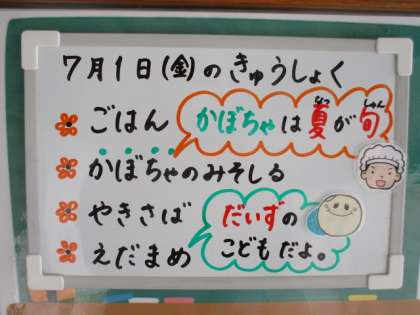 7月1日(金)のきゅうしょく
ごはん
かぼちゃは夏が旬
なつ
しゅん
かぼちゃのみそしる
やきさば
えだまめ
だいずの
こどもだよ。